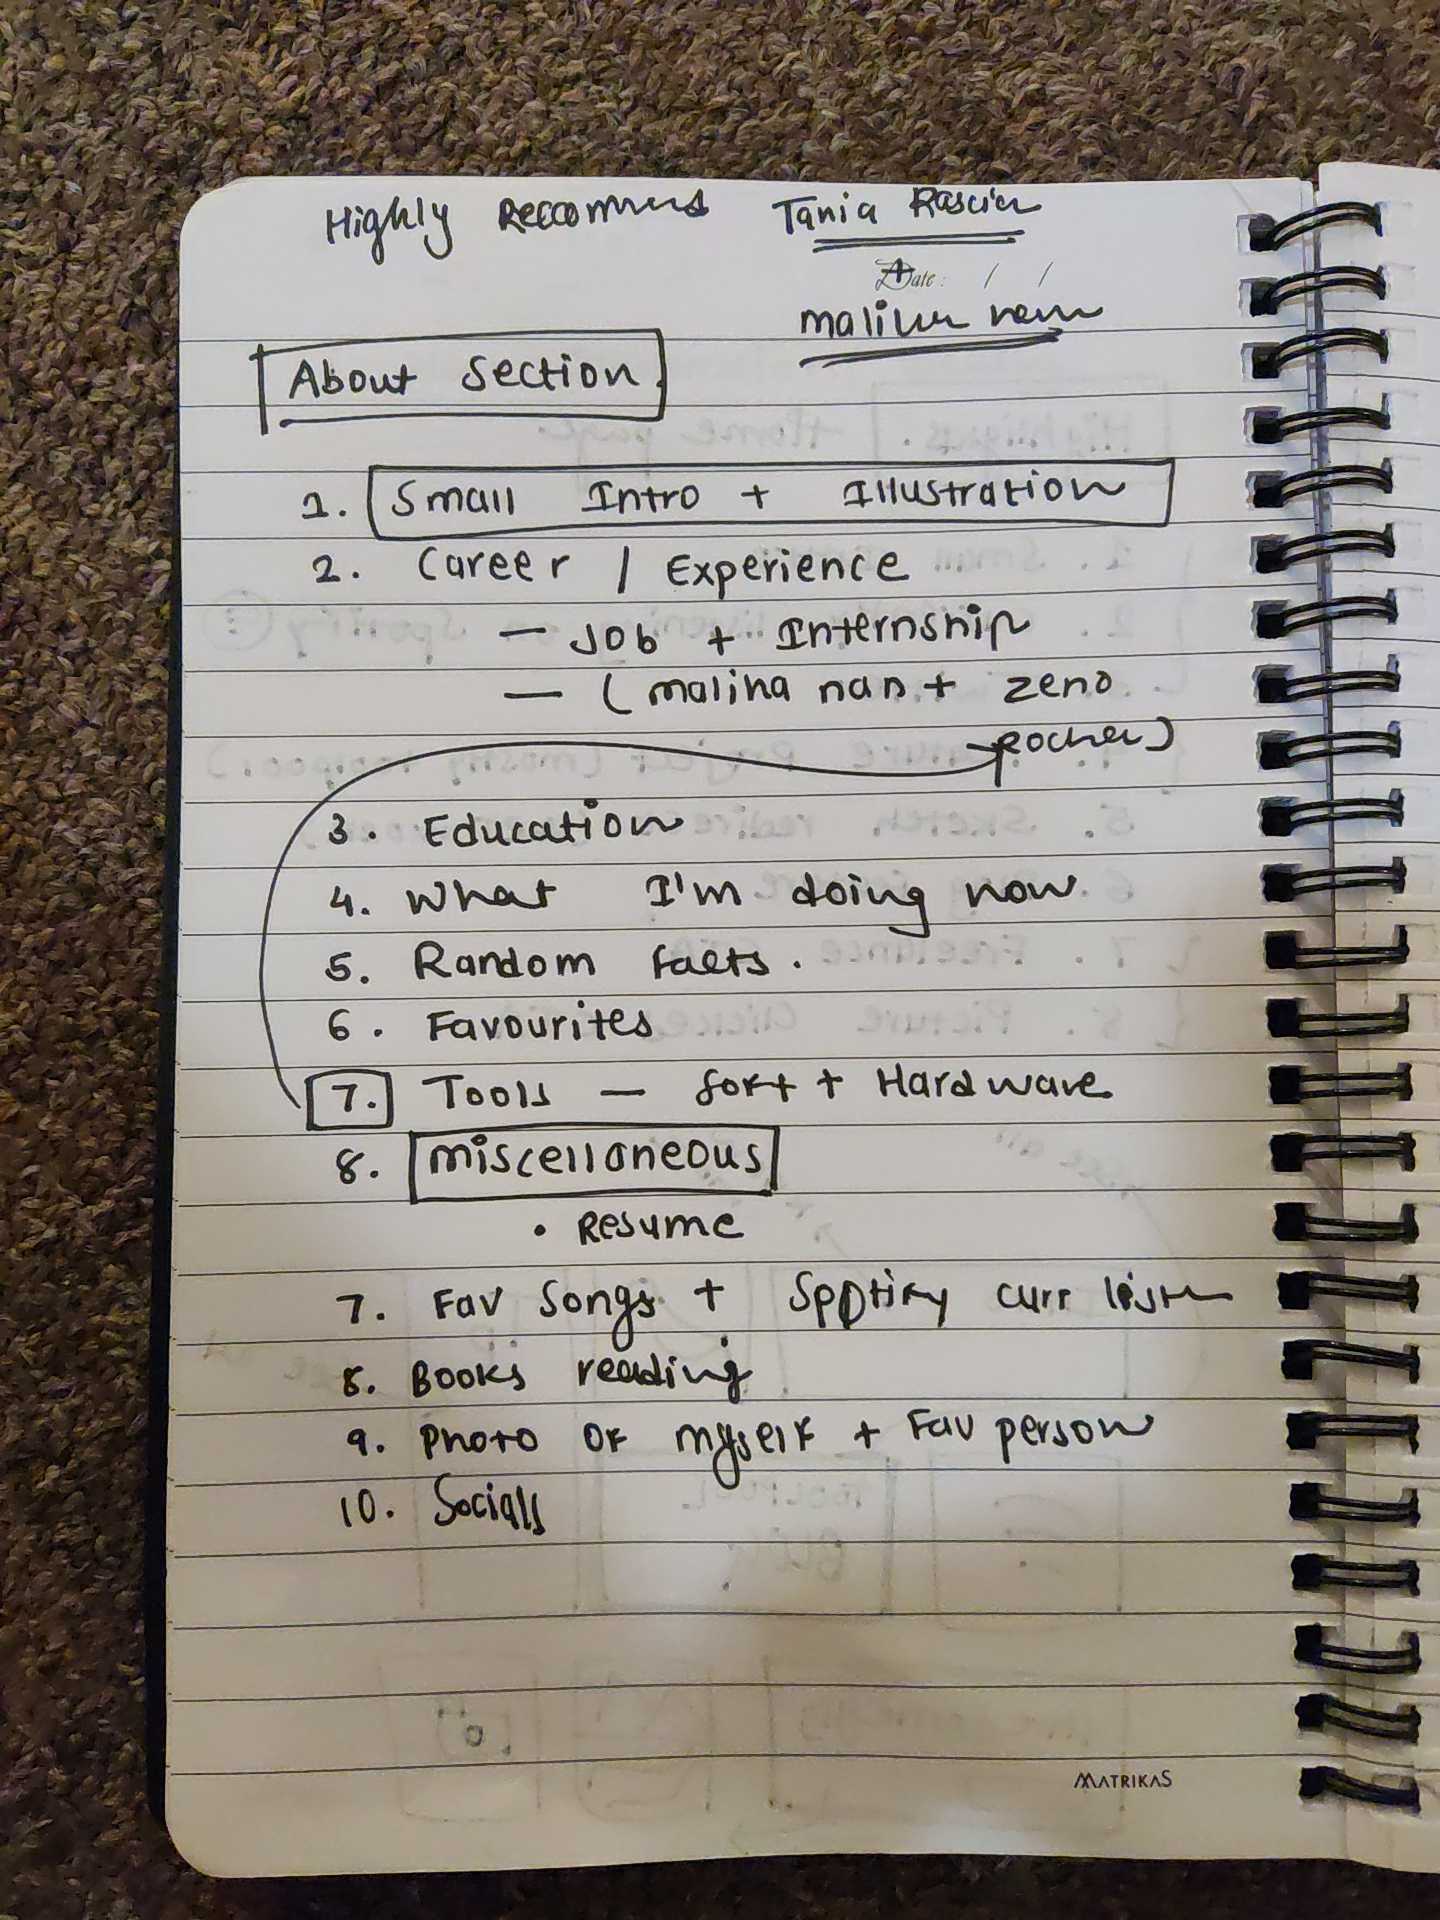 Highly Reccommends Tania Rascia
Date: / /
+
About Section
1. Small Intro + Illustration
2. Career / Experience
— Job + Internship
— (malina nan + zeno
rocha)
3. Education
4. What I'm doing now
5. Random facts.
6. Favourites
7. Tools — Soft + Hardware
8. miscellaneous
• Resume
7. Fav Songs + Spotify curr listen
8. Books reading
9. Photo of myself + Fav person
10. Socials
MATRIKAS